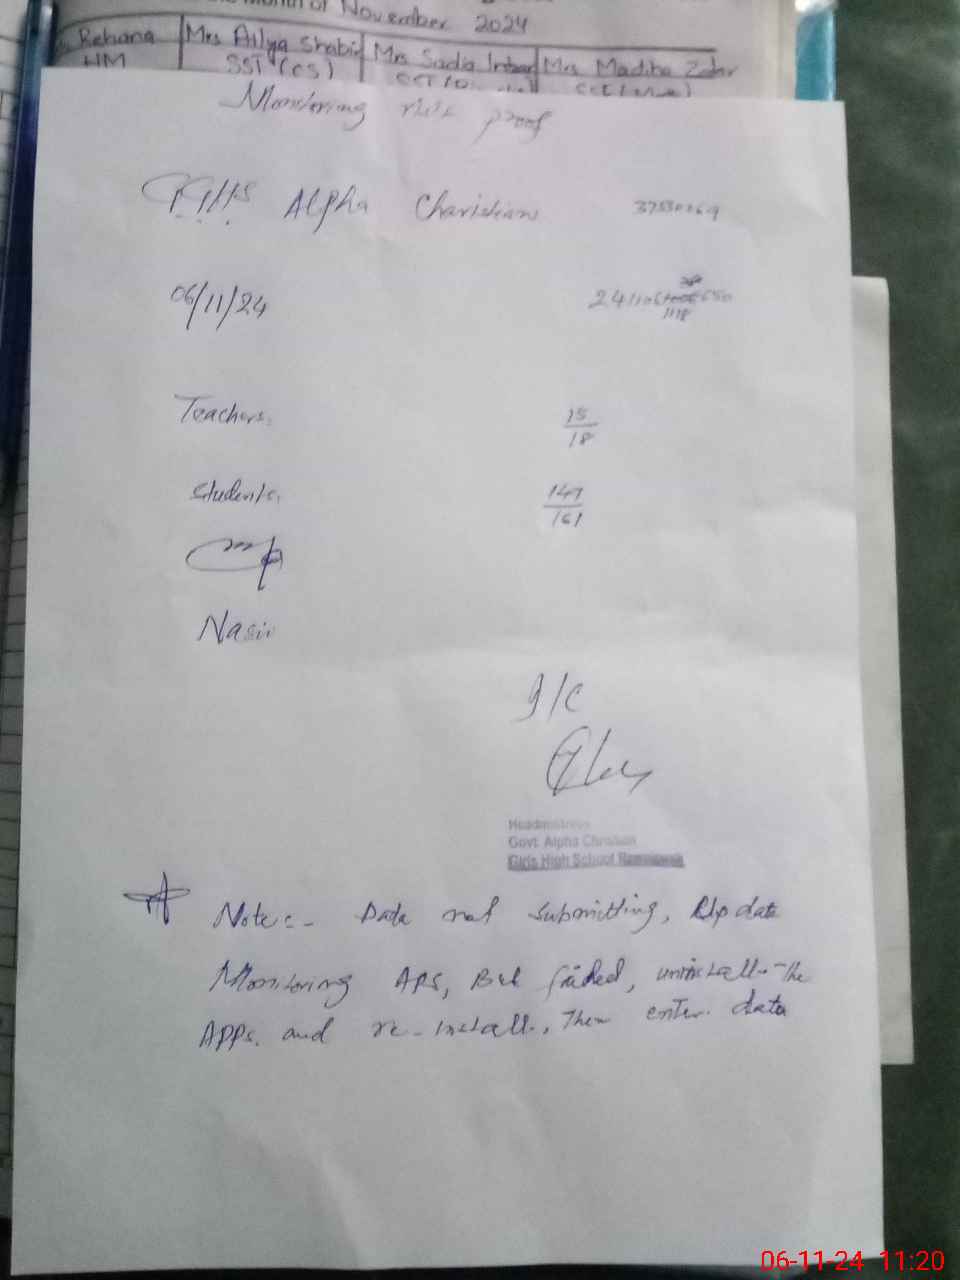 Month of November 2024
Rehana Mrs Atiya Shabir Mrs Sadia Mrs Madiha
HM SST (CS)
Monitoring visit proof
GGHS Alpha Charistian
06/11/24
1118
Teachers. 15/18
Students. 147/161
Nasir
I/C
Headmistress
Govt. Alpha Christian
Girls High School
Note:- Data not submitting, Update
Monitoring APS, But failed, uninstall the
APPs. and re-install. Then enter data
06-11-24 11:20